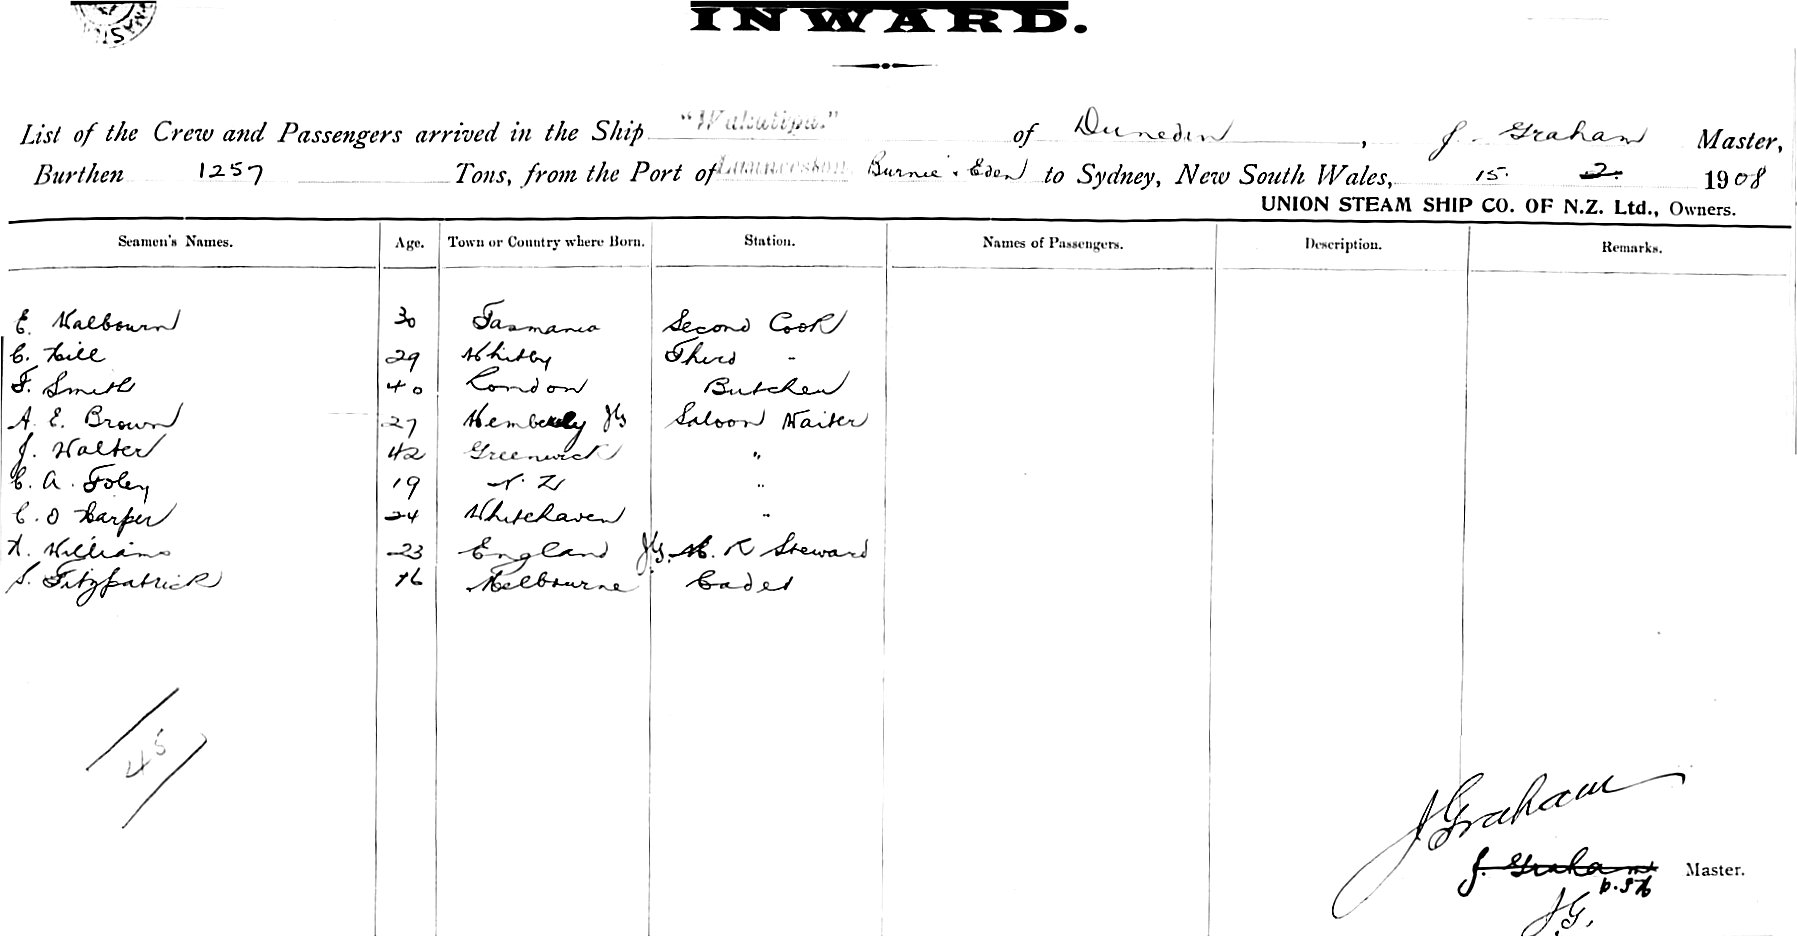 INWARD.
List of the Crew and Passengers arrived in the Ship "Wakatipu." of Dunedin, J. Graham Master,
Burthen 1257 Tons, from the Port of Launceston Burnie & Eden to Sydney, New South Wales, 15. 2. 1908
UNION STEAM SHIP CO. OF N.Z. Ltd., Owners.
Seamen's Names. Age. Town or Country where Born. Station. Names of Passengers. Description. Remarks.
E. Walbourn 30 Tasmania Second Cook
C. Hill 29 Whitby Third "
F. Smith 40 London Butcher
A. E. Brown 27 JG Saloon Waiter
J. Walter 42 Greenwich "
C. A. Foley 19 N. Z "
C. O Harper 24 Whitehaven "
H. Williams 23 England JG. M. R Steward
S. Fitzpatrick 16 Melbourne Cadet
45
J Graham
J. Graham Master.
J.G.